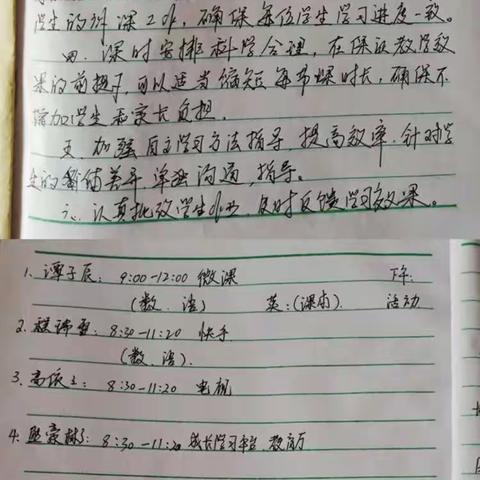 学生的讲课工作,确保每位学生学习进度一致。
四、课时安排科学合理,在保证教学效
果的前提下,可以适当缩短每节课时长,确保不
增加学生和家长负担.
五、加强自主学习方法指导,提高效率.针对学
生的个体差异单独沟通,指导。
六、认真批改学生作业,及时反馈学习效果。
1. 谭子辰: 9:00-12:00 微课 下午:
(数、语) 英:(课内). 活动
2. 8:30-11:20 快手
(数、语).
3. 8:30-11:20 电视
4. 8:30-11:20 成长学习平台.教育厅